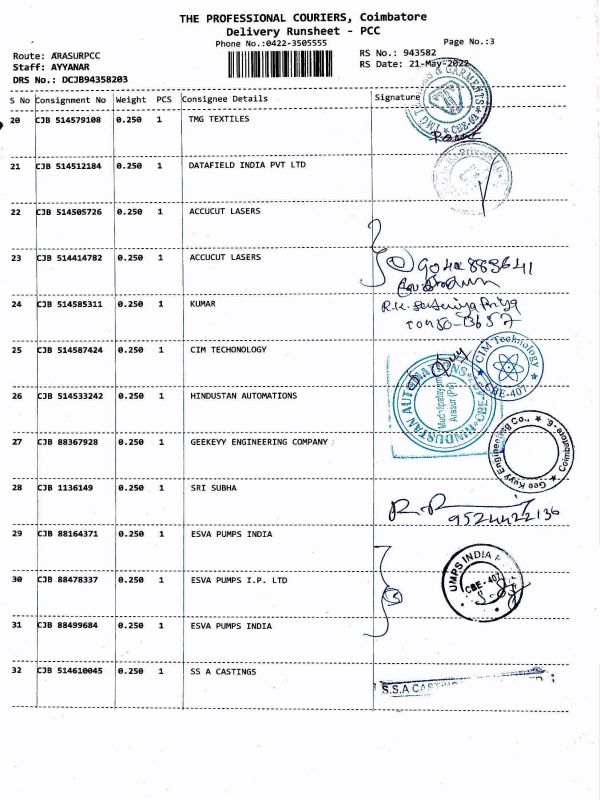 THE PROFESSIONAL COURIERS, Coimbatore
Delivery Runsheet - PCC
Phone No.:0422-3505555
Page No.:3
Route: ARASURPCC
RS No.: 943582
Staff: AYYANAR
RS Date: 21-May-2022
DRS No.: DCJB94358203
S No Consignment No Weight PCS Consignee Details Signature
20 CJB 514579108 0.250 1 TMG TEXTILES
21 CJB 514512184 0.250 1 DATAFIELD INDIA PVT LTD
22 CJB 514505726 0.250 1 ACCUCUT LASERS
23 CJB 514414782 0.250 1 ACCUCUT LASERS
24 CJB 514585311 0.250 1 KUMAR
25 CJB 514587424 0.250 1 CIM TECHONOLOGY
CIM Technology
CBE-407
26 CJB 514533242 0.250 1 HINDUSTAN AUTOMATIONS
HINDUSTAN AUTOMATIONS
Arasur (Po)
27 CJB 88367928 0.250 1 GEEKEYY ENGINEERING COMPANY
Gee Keyy Engineering Co.,
28 CJB 1136149 0.250 1 SRI SUBHA
9524422136
29 CJB 88164371 0.250 1 ESVA PUMPS INDIA
30 CJB 88478337 0.250 1 ESVA PUMPS I.P. LTD
UMPS INDIA
CBE-407
31 CJB 88499684 0.250 1 ESVA PUMPS INDIA
32 CJB 514610045 0.250 1 SS A CASTINGS
S.S.A